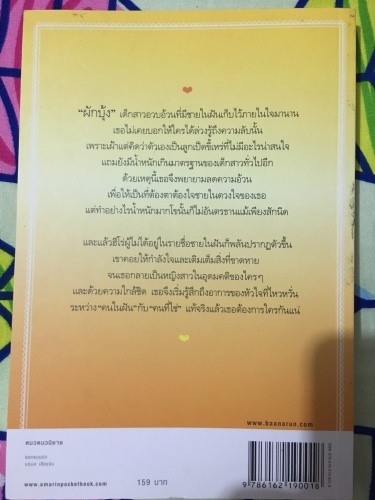 "ผักบุ้ง" เด็กสาวอวบอ้วนที่มีชายในฝันเก็บไว้ภายในใจมานาน
เธอไม่เคยบอกให้ใครได้ล่วงรู้ถึงความลับนั้น
เพราะเฝ้าแต่คิดว่าตัวเองเป็นลูกเป็ดขี้เหร่ที่ไม่มีอะไรน่าสนใจ
แถมยังมีน้ำหนักเกินมาตรฐานของเด็กสาวทั่วไปอีก
ด้วยเหตุนี้เธอจึงพยายามลดความอ้วน
เพื่อให้เป็นที่ต้องตาต้องใจชายในดวงใจของเธอ
แต่ทำอย่างไรน้ำหนักมากโขนั้นก็ไม่อันตรธานแม้เพียงสักนิด
และแล้วฮีโร่ผู้ไม่ได้อยู่ในรายชื่อชายในฝันก็พลันปรากฏตัวขึ้น
เขาคอยให้กำลังใจและเติมเต็มสิ่งที่ขาดหาย
จนเธอกลายเป็นหญิงสาวในอุดมคติของใครๆ
และด้วยความใกล้ชิด เธอจึงเริ่มรู้สึกถึงอาการของหัวใจที่ไหวหวั่น
ระหว่าง "คนในฝัน" กับ "คนที่ใช่" แท้จริงแล้วเธอต้องการใครกันแน่
www.baanarun.com
หมวดนวนิยาย
www.amarinpocketbook.com
159 บาท
9 786162 190018